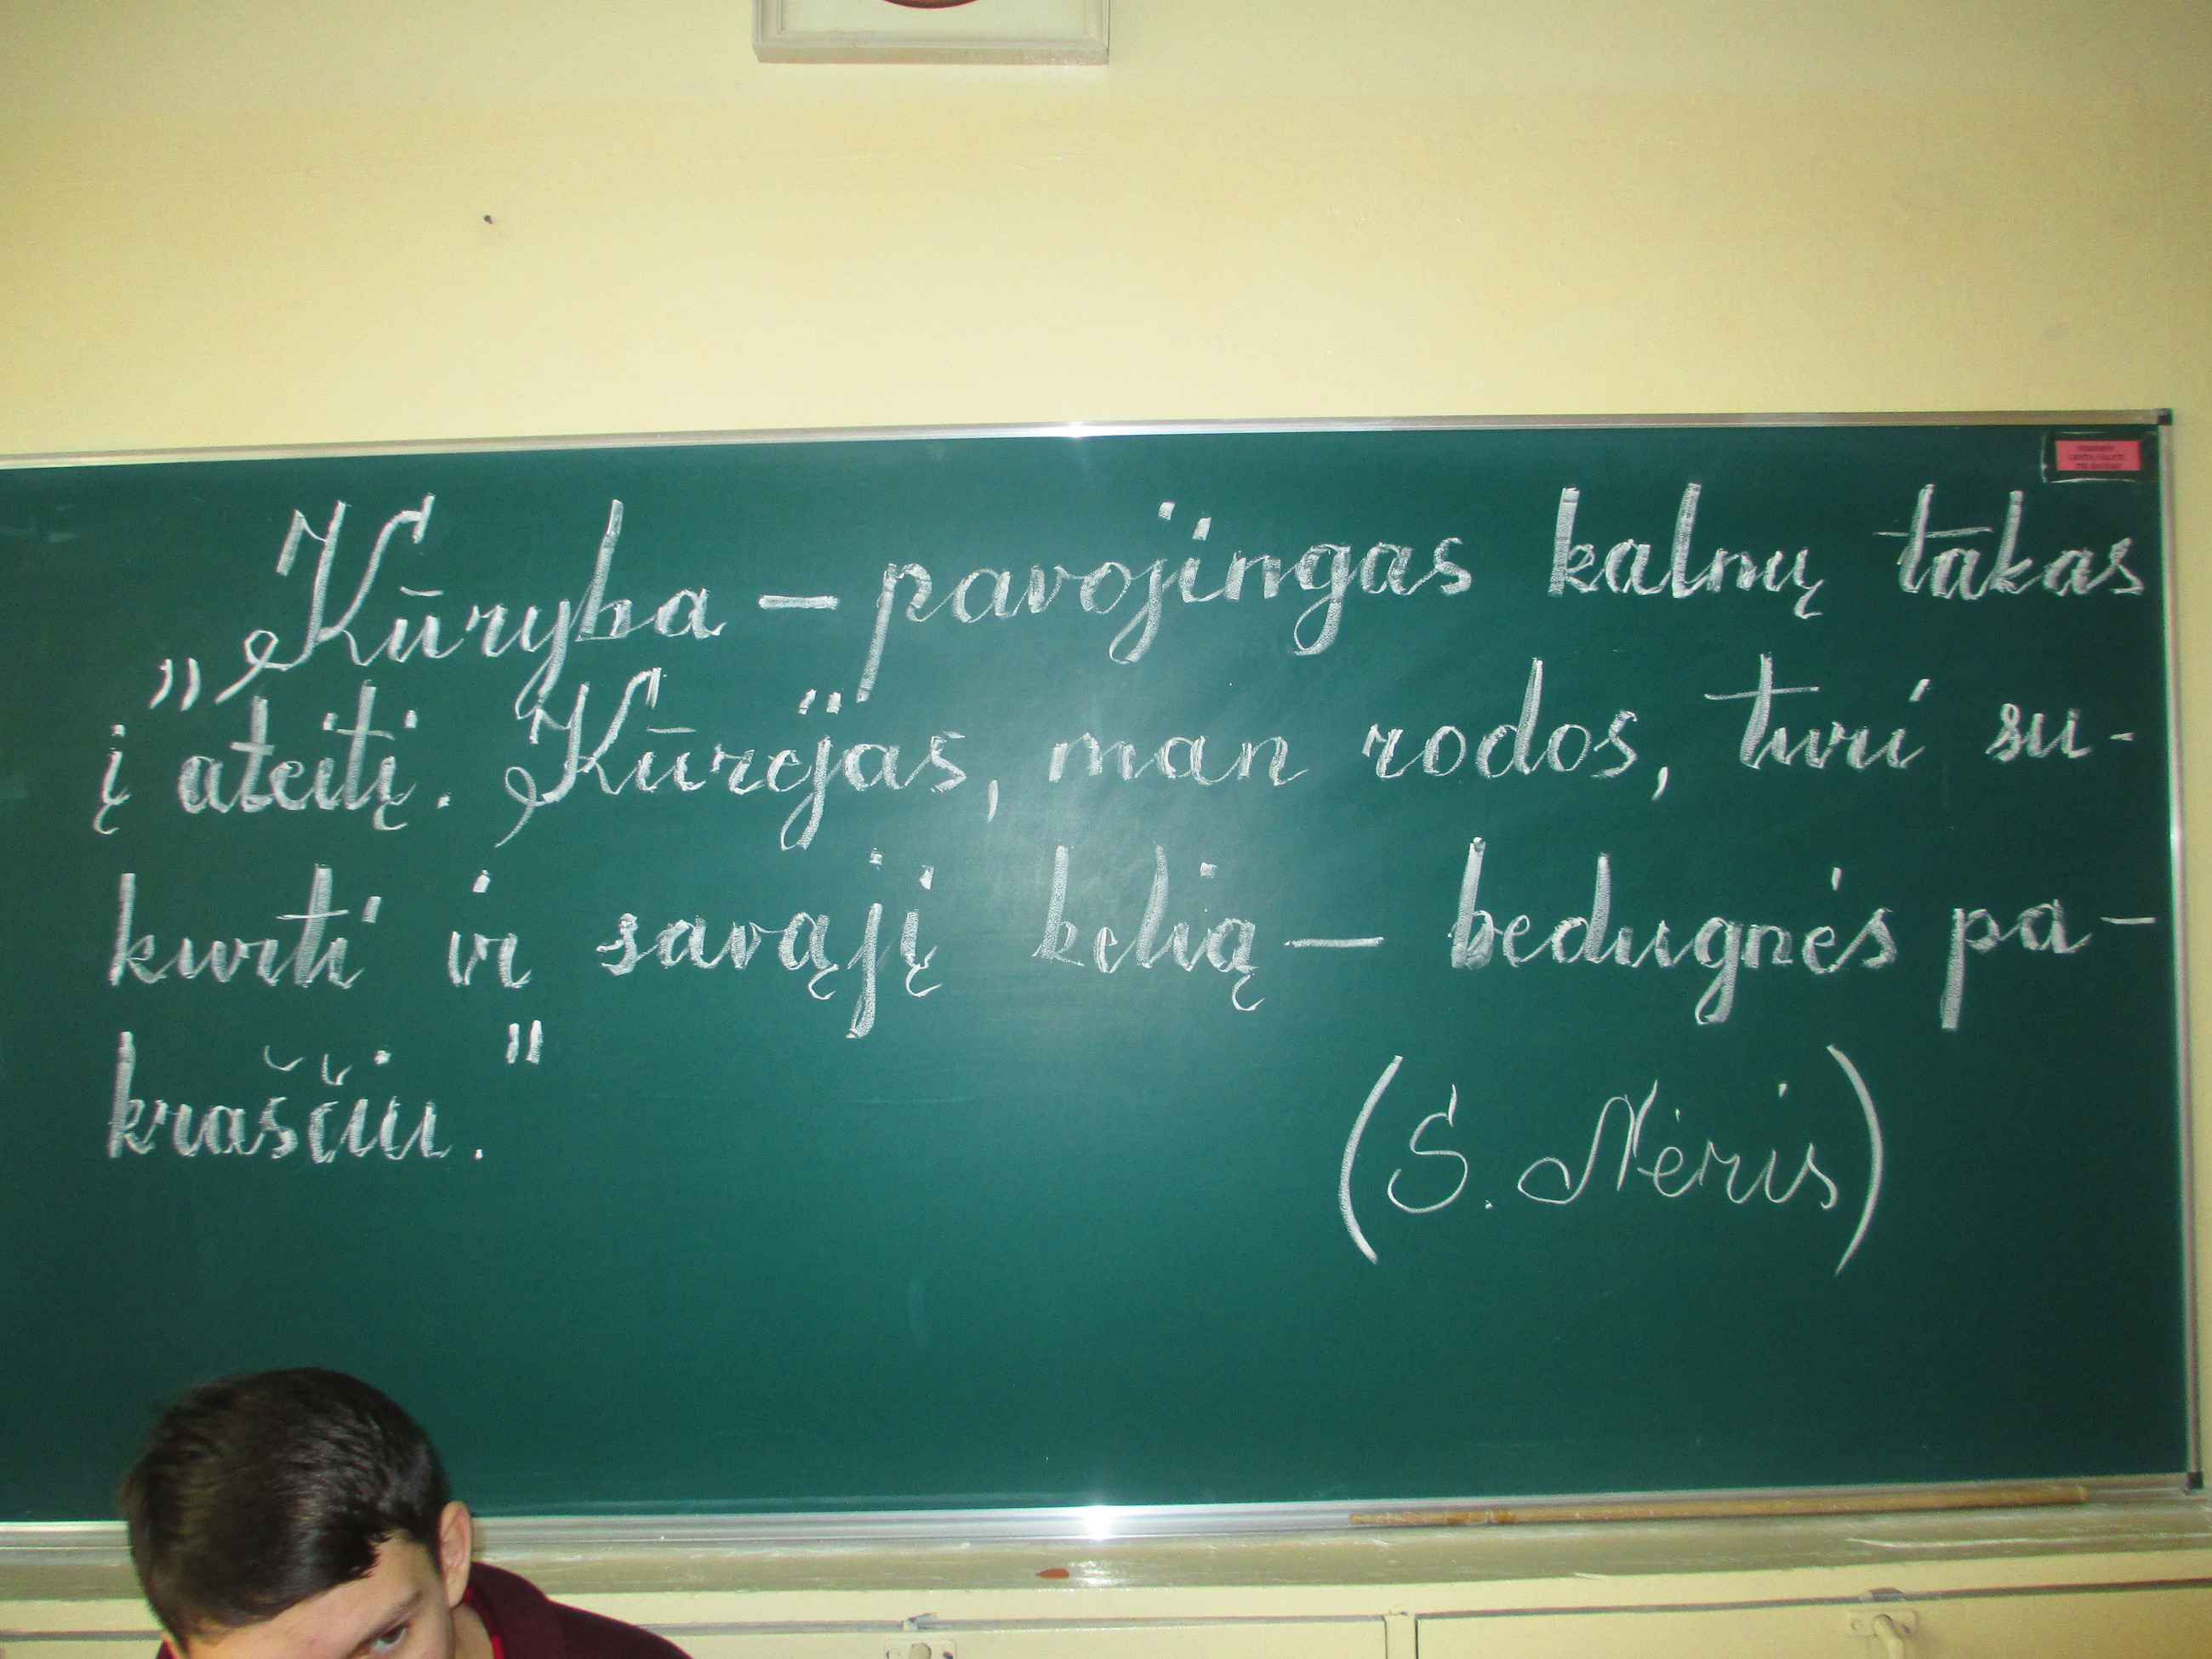 „Kūryba – pavojingas kalnų takas
į ateitį. Kūrėjas, man rodos, turi su-
kurti ir savąjį kelią – bedugnės pa-
kraščiu."
(S. Nėris)